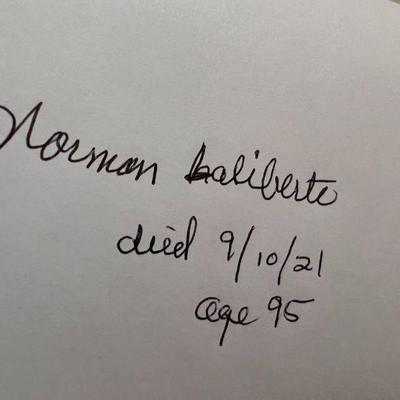 Norman Laliberte
died 9/10/21
age 95